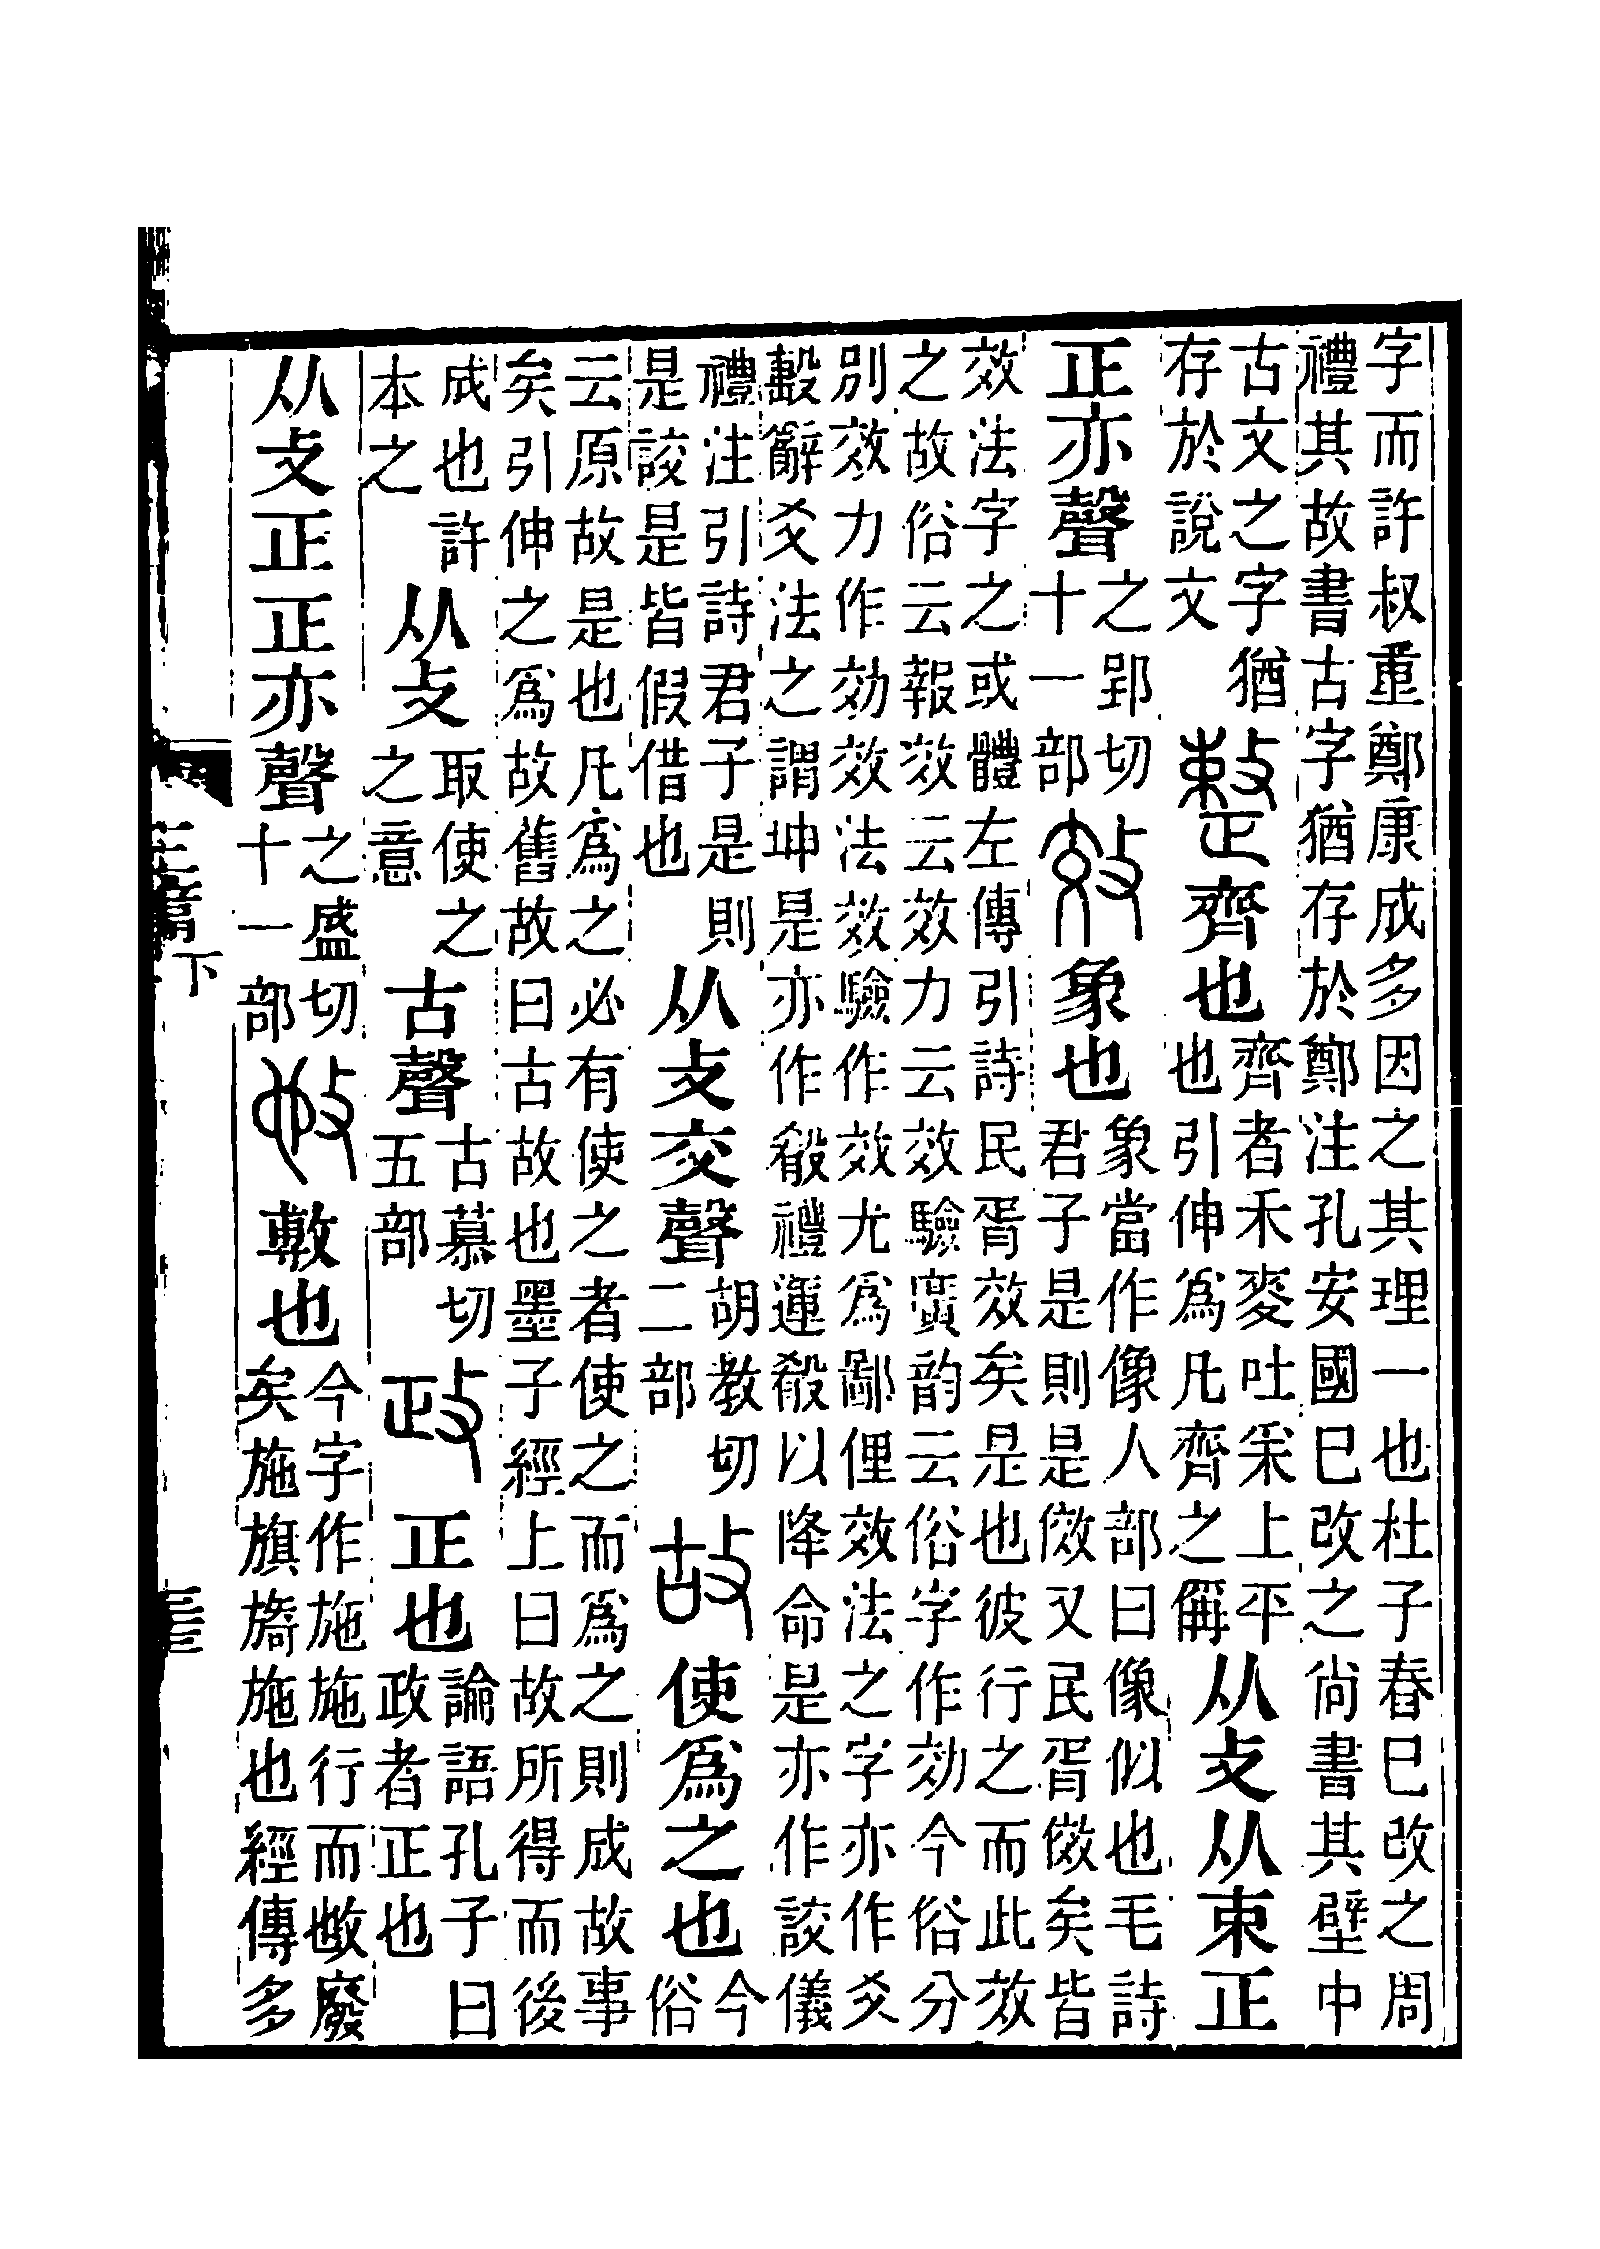 字而許叔重鄭康成多因之其理一也杜子春巳改之周
禮其故書古字猶存於鄭注孔安國巳改之尙書其壁中
古文之字猶
存於說文
整齊也
齊者禾麥吐采上平
也引伸爲凡齊之稱
从攴从束正
正亦聲
之郢切
十一部
效象也
象當作像人部曰像似也毛詩
君子是則是傚又民胥傚矣皆
效法字之或體左傳引詩民胥效矣是也彼行之而此效
之故俗云報效云效力云效驗廣韵云俗字作効今俗分
別效力作効效法效驗作效尤爲鄙俚效法之字亦作爻
毄辭爻法之謂坤是亦作殽禮運殽以降命是亦作詨儀
禮注引詩君子是則
是詨是皆假借也
从攴交聲
胡教切
二部
故使爲之也
今
俗
云原故是也凡爲之必有使之者使之而爲之則成故事
矣引伸之爲故舊故曰古故也墨子經上曰故所得而後
成也許
本之
从攴
取使之
之意
古聲
古慕切
五部
政正也
論語孔子曰
政者正也
从攴正正亦聲
之盛切
十一部
𢻱敷也
今字作施施行而𢻱廢
矣施旗旖施也經傳多
三篇下
三三